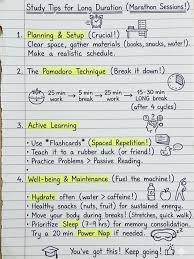 Study Tips for Long Duration (Marathon Sessions!)
1. Planning & Setup (Crucial!)
Clear space, gather materials (books, snacks, water!).
Make a realistic schedule.
2. The Pomodoro Technique (Break it down!)
25 min work
5 min break
25 min work
5 min break
15-30 min LONG break
(after 4 cycles)
3. Active Learning
• Use "Flashcards" (Spaced Repetition!)
• Teach it to a rubber duck (or friend!).
• Practice Problems > Passive Reading.
4. Well-being & Maintenance (Fuel the machine!)
• Hydrate often (water > caffeine!).
• Healthy snacks (nuts, fruit) for sustained energy.
• Move your body during breaks (Stretches, quick walk).
• Prioritize Sleep (7-9 hrs) for memory consolidation.
Try a 20 min Power Nap if needed.
You've got this! Keep going!